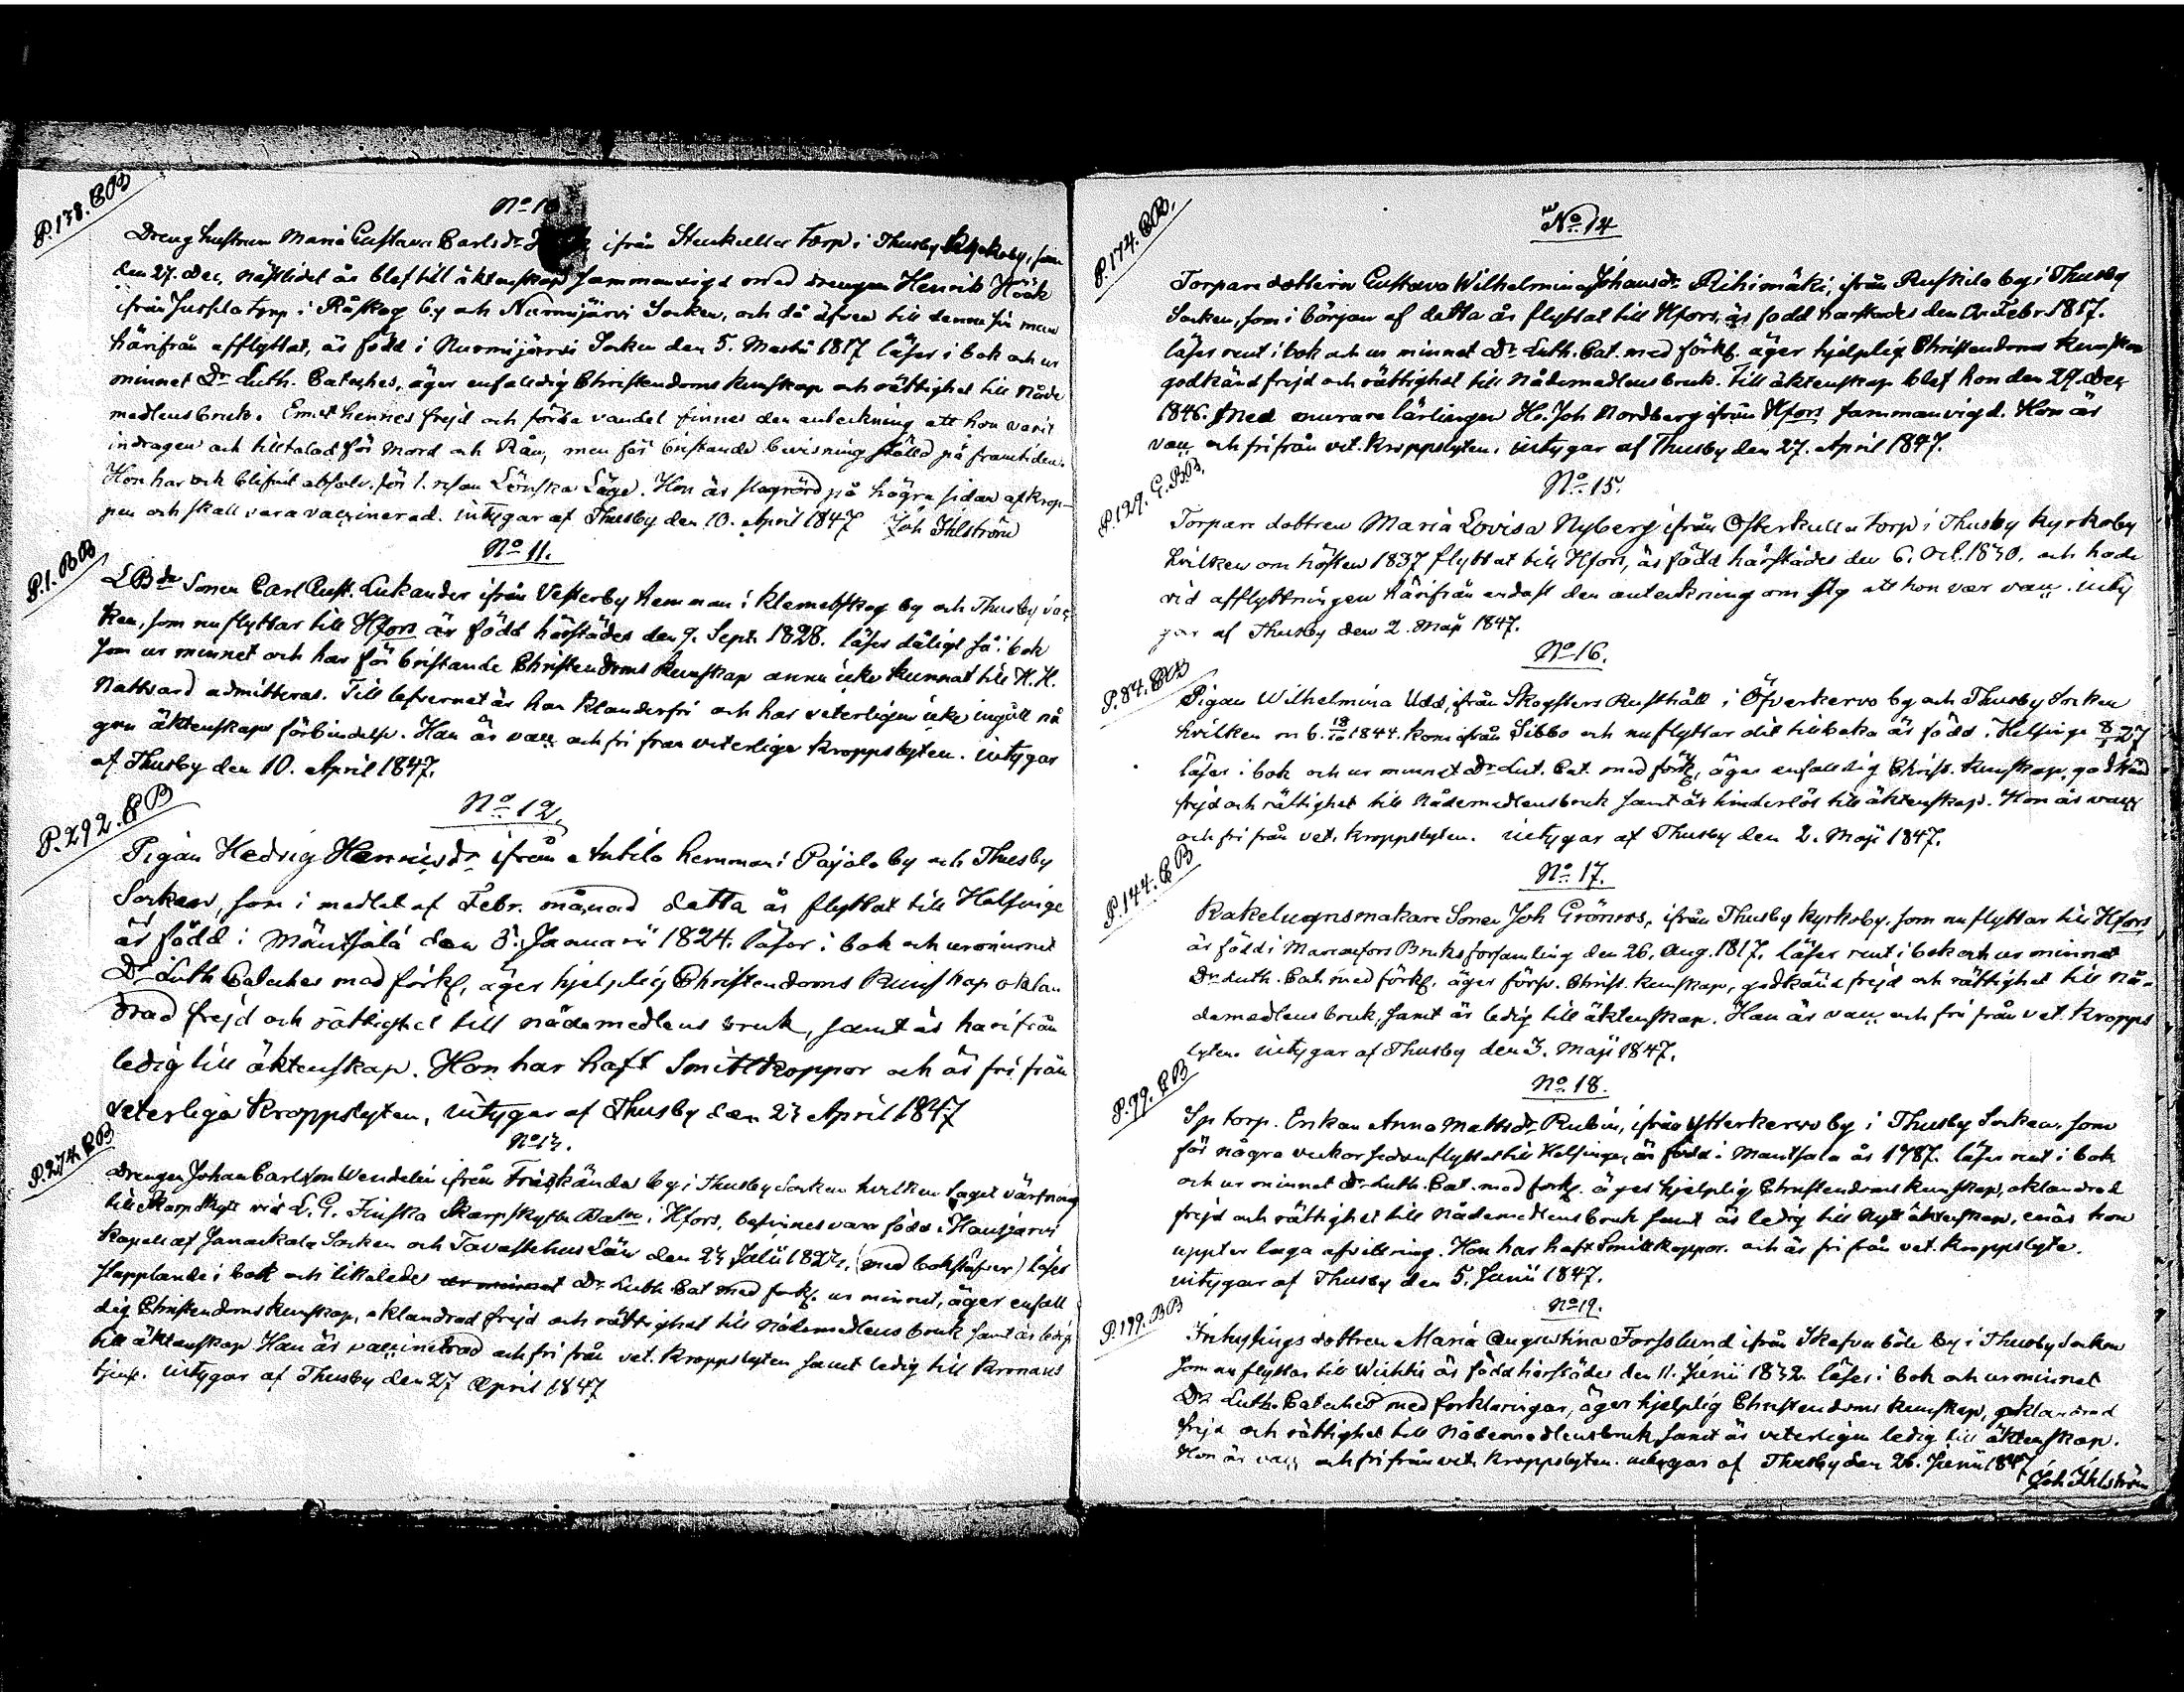 P. 138. BB
No 10
Dreng hustrun Maria Gustava Carls dr ifrån Stenkulla torp i Thusby Kyrkoby, som
den 27. Dec. nästlidet år blef till äktenskap sammanvigd med drengen Henrik Höök
ifrån Jussila torp i Råskog by och Nurmijärvi Socken, och då äfven till denne sin man
härifrån afflyttat, är född i Nurmijärvi Socken den 5. Martii 1817 läser i bok och ur
minnet Dr Luth. Cateches, äger enfaldig Christendoms kunskap och rättighet till Nåde
medlens bruk. Emot hennes frejd och förda vandel finnes den anteckning att hon varit
indragen och tilltalad för Mord och Rån, men för bristande bevisning ställd på framtiden.
Hon har ock blifvit absolv. för 1. resan Lönska Läge. Hon är slagrörd på högra sidan af krop-
pen och skall vara vaccinerad. intygar af Thusby den 10. April 1847 Joh Ihlström
P. 1. BB
No 11.
LBdr Sonen Carl Gust. Lukander ifrån Vesterby hemman i Klemetskog by och Thusby soc
ken, som nu flyttar till Hfors är född härstädes den 9. Sept. 1828. läser dåligt så i bok
som ur minnet och har för bristande Christendoms kunskap ännu icke kunnat till H. H.
Nattvard admitteras. Till lefvernet är han klanderfri och har veterligen icke ingått nå
gon äktenskaps förbindelse. Han är vacc. och fri från veterliga kroppslyten. intygar
af Thusby den 10. April 1847.
P. 292. BB
No 12.
Pigan Hedvig Henricsdr ifrån Anttila hemman i Pajala by och Thusby
Socken, som i medlet af Febr. månad detta år flyttat till Helsinge
är född i Mäntsälä den 5. Januarii 1824. läser i bok och ur minnet
Dr Luth Cateches med förkl, äger hjelplig Christendoms kunskap oklan
drad frejd och rättighet till nådemedlens bruk, samt är härifrån
ledig till äktenskap. Hon har haft Smittkoppor och är fri från
veterliga kroppslyten, intygar af Thusby den 23 April 1847
P. 274. BB
No 13.
Drengen Johan Carlsson Wendelin ifrån Träskända by i Thusby Socken hvilken taget värfning
till Skarpskytt vid L. G. Finska Skarpskytte Batn i Hfors, befinnes vara född i Hausjärvi
Kapell af Janackala Socken och Tavastehus Län den 23 Julii 1823, (med bokstäfver) läser
stapplande i bok och likaledes ur minnet Dr Luth Cat med förkl. ur minnet, äger enfall
dig Christendoms kunskap, oklandrad frejd och rättighet till Nådemedlens bruk samt är ledig
till äktenskap Han är vaccinerad och fri från vet. kroppslyten samt ledig till Kronans
tjenst. intygar af Thusby den 27 April 1847
P. 174. BB.
No 14
Torpare dottern Gustava Wilhelmina Johansdr Rihimäki, ifrån Ruskila by i Thusby
Socken, som i början af detta år flyttat till Hfors, är född härstädes den Febr 1817.
läser rent i bok och ur minnet Dr Luth. Cat. med förkl. äger hjelplig Christendoms kunskap
godkänd frejd och rättighet till Nådemedlens bruk. Till äktenskap blef hon den 29. Dec
1846. med murare lärlingen Joh Nordberg ifrån Hfors sammanvigd. Hon är
vacc och fri från vet. kroppslyten, intygar af Thusby den 27. April 1847.
P. 129. G. BB.
No 15.
Torpare dottren Maria Lovisa Nyberg ifrån Österkulla torp i Thusby kyrkoby
hvilken om hösten 1837 flyttat till Hfors, är född härstädes den 6. Oct. 1830. och hade
vid afflyttningen härifrån endast den anteckning om sig att hon var vacc. inty
gar af Thusby den 2. Maji 1847.
P. 84. BB
No 16.
Pigan Wilhelmina Udd, ifrån Skogsters Rusthåll i Öfverkervo by och Thusby Socken
hvilken 1844. kom ifrån Sibbo och nu flyttar dit tillbaka är född i Helsinge 27
läser i bok och ur minnet Dr Lut. Cat. med förkl, äger enfalldig Christ. kunskap, godkänd
frejd och rättighet till Nådemedlens bruk samt är hinderlös till äktenskap. Hon är vacc
och fri från vet. kroppslyten. intygar af Thusby den 2. Maji 1847.
P. 144. BB
No 17.
Kakelugnsmakare Sonen Joh Grönroos, ifrån Thusby kyrkoby. som nu flyttar till Hfors
är född i Mariæfors Bruksförsamling den 26. Aug. 1817. läser rent i bok och ur minnet
Dr Luth. Cat. med förkl. äger försv. Christ. kunskap, godkänd frejd och rättighet till Nå-
demedlens bruk, samt är ledig till äktenskap. Han är vacc. och fri från vet. kropps
lyten. intygar af Thusby den 3. Maji 1847.
P. 99. BB
No 18.
Sp torp. Enkan Anna Mattsdr Rubin, ifrån Ytterkervo by i Thusby Socken, som
för några veckor sedan flyttat till Helsinge, är född i Mäntsälä år 1787. läser rent i bok
och ur minnet Dr Luth. Cat. med förkl. äger hjelplig Christendoms kunskap, oklandrad
frejd och rättighet till Nådemedlens bruk samt är ledig till Nytt äktenskap, enär hon
uppter laga afvittring. Hon har haft Smittkoppor. och är fri från vet. kroppslyte.
intygar af Thusby den 5. Junii 1847.
P. 199. BB
No 19.
Inhysings dottren Maria Augustina Forsslund ifrån Skafvaböle by i Thusby Socken
som nu flyttar till Wichtis är född härstädes den 11. Junii 1832. läser i bok och ur minnet
Dr Luth. Cateches med förklaringar, äger hjelplig Christendoms kunskap, oklandrad
frejd och rättighet till Nådemedlens bruk samt är veterligen ledig till äktenskap.
Hon är vacc och fri från vet. kroppslyten. intygar af Thusby den 26. Junii 1847
Joh Ihlström